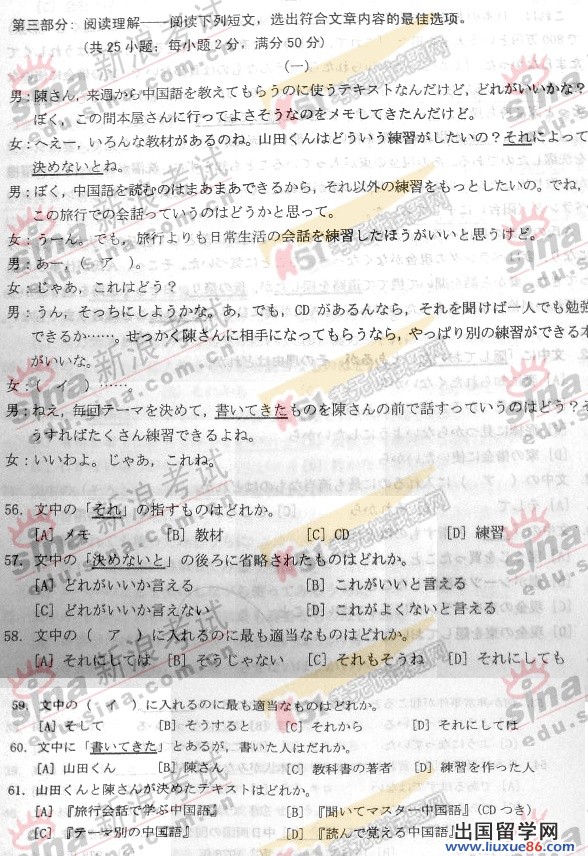 第三部分：阅读理解——阅读下列短文，选出符合文章内容的最佳选项。
(共 25 小题；每小题 2 分，满分 50 分)
(一)
男：陳さん，来週から中国語を教えてもらうのに使うテキストなんだけど，どれがいいかな？
ぼく，この間本屋さんに行ってよさそうなのをメモしてきたんだけど。
女：へえー，いろんな教材があるのね。山田くんはどういう練習がしたいの？それによって
決めないとね。
男：ぼく，中国語を読むのはまあまあできるから，それ以外の練習をもっとしたいの。でね，
この旅行での会話っていうのはどうかと思って。
女：うーん。でも，旅行よりも日常生活の会話を練習したほうがいいと思うけど。
男：あー，（ ア ）。
女：じゃあ，これはどう？
男：うん，そっちにしようかな。あ，でも，CD があるんなら，それを聞けば一人でも勉強
できるか……。せっかく陳さんに相手になってもらうなら，やっぱり別の練習ができる本
がいいな。
女：（ イ ）……。
男：ねえ，毎回テーマを決めて，書いてきたものを陳さんの前で話すっていうのはどう？そ
うすればたくさん練習できるよね。
女：いいわよ。じゃあ，これね。
56. 文中の「それ」の指すものはどれか。
[A] メモ [B] 教材 [C] CD [D] 練習
57. 文中の「決めないと」の後ろに省略されたものはどれか。
[A] どれがいいか言える [B] これがいいと言える
[C] どれがいいか言えない [D] これがよくないと言える
58. 文中の（ ア ）に入れるのに最も適当なものはどれか。
[A] それにしては [B] そうじゃない [C] それもそうね [D] それにしても
59. 文中の（ イ ）に入れるのに最も適当なものはどれか。
[A] そして [B] そうすると [C] それから [D] それにしては
60. 文中に「書いてきた」とあるが，書いた人はだれか。
[A] 山田くん [B] 陳さん [C] 教科書の著者 [D] 練習を作った人
61. 山田くんと陳さんが決めたテキストはどれか。
[A] 『旅行会話で学ぶ中国語』 [B] 『聞いてマスター中国語』(CD つき)
[C] 『テーマ別の中国語』 [D] 『読んで覚える中国語』
出国留学网
www.liuxue86.com